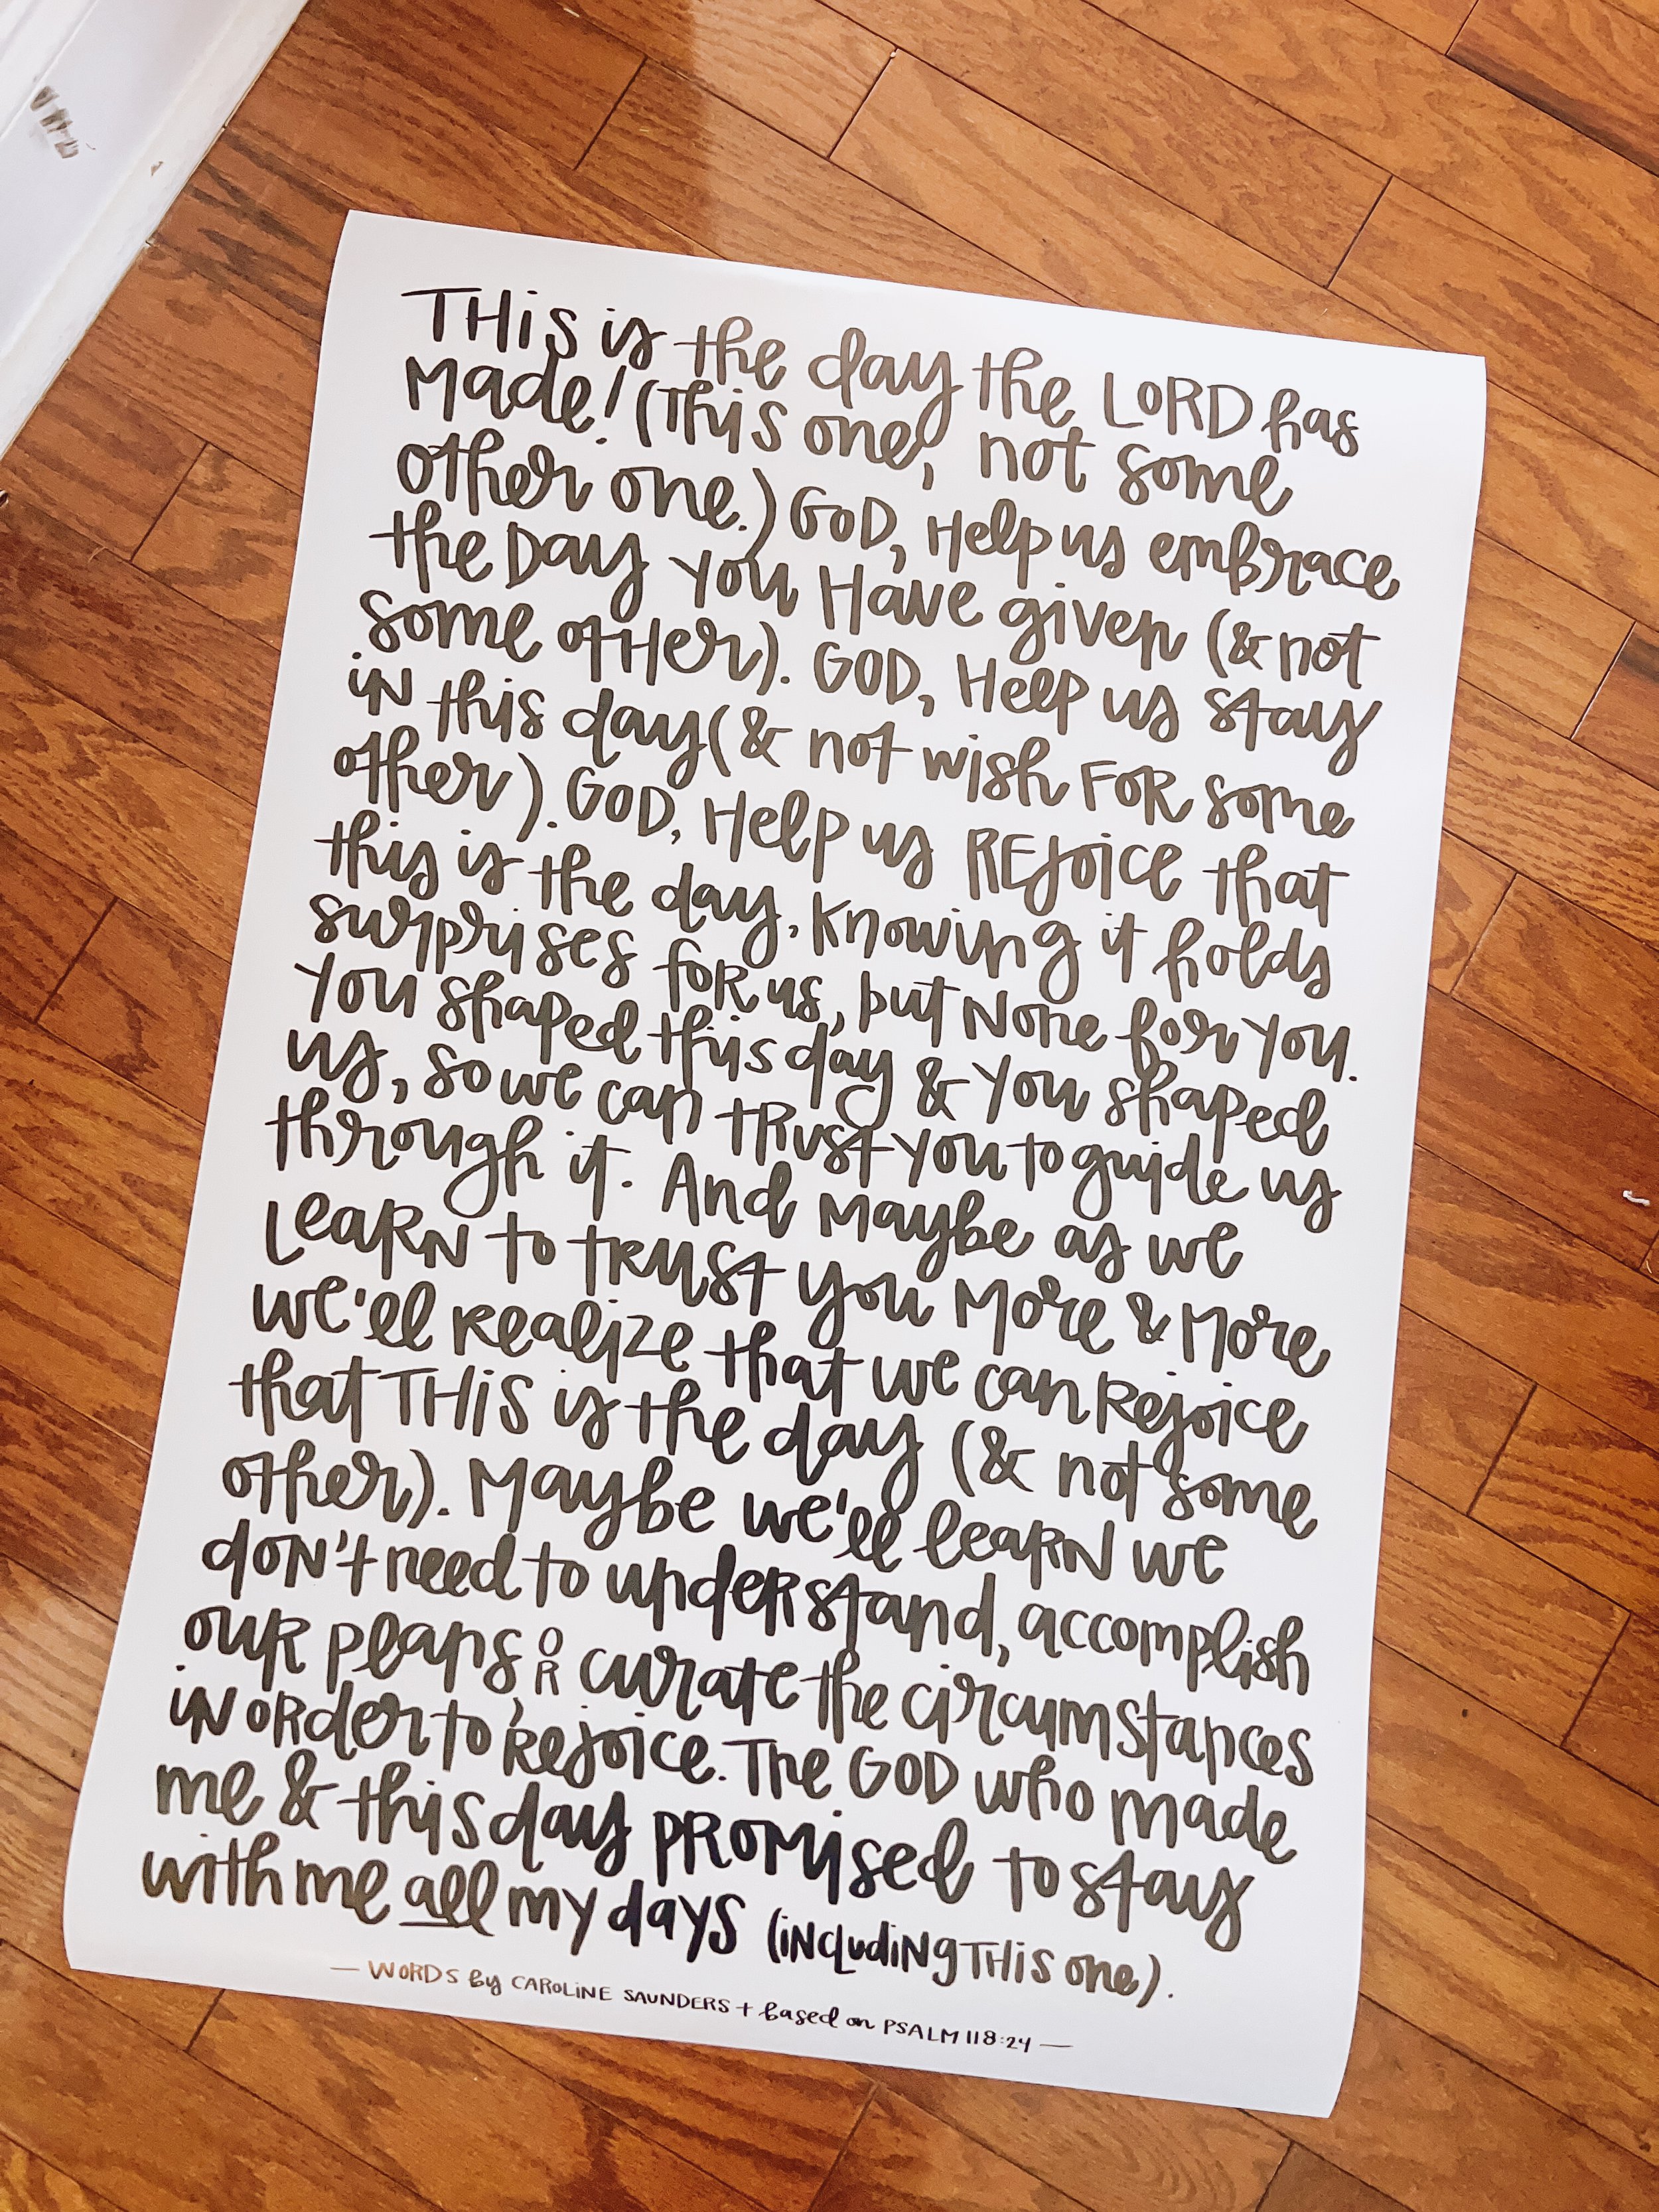 THis is the day the LORD has
Made! (This one, not some
other one.) GOD, Help us embrace
the Day you Have given (& not
some otHer). GOD, Help us stay
in this day (& not wish FOR some
other). GOD, Help us REJOICE that
this is the day, knowing it holds
surprises foR us, but None for you.
You shaped this day & you shaped
us, so we can tRust you to guide us
through it. And Maybe as we
LeaRN to tRUST you More & More
we'll Realize that we can Rejoice
that THIS is the day (& not some
other). Maybe we'll leaRN we
doN't need to undeRstand, accomplish
ouR plans, OR curate the circumstances
iN oRder to Rejoice. The GOD who made
me & this day PROMised to stay
with me all my days (iNcLudiNg THiS one).
— WORDS By CAROLiNE SAUNDERS + based on PSALM 118:24 —